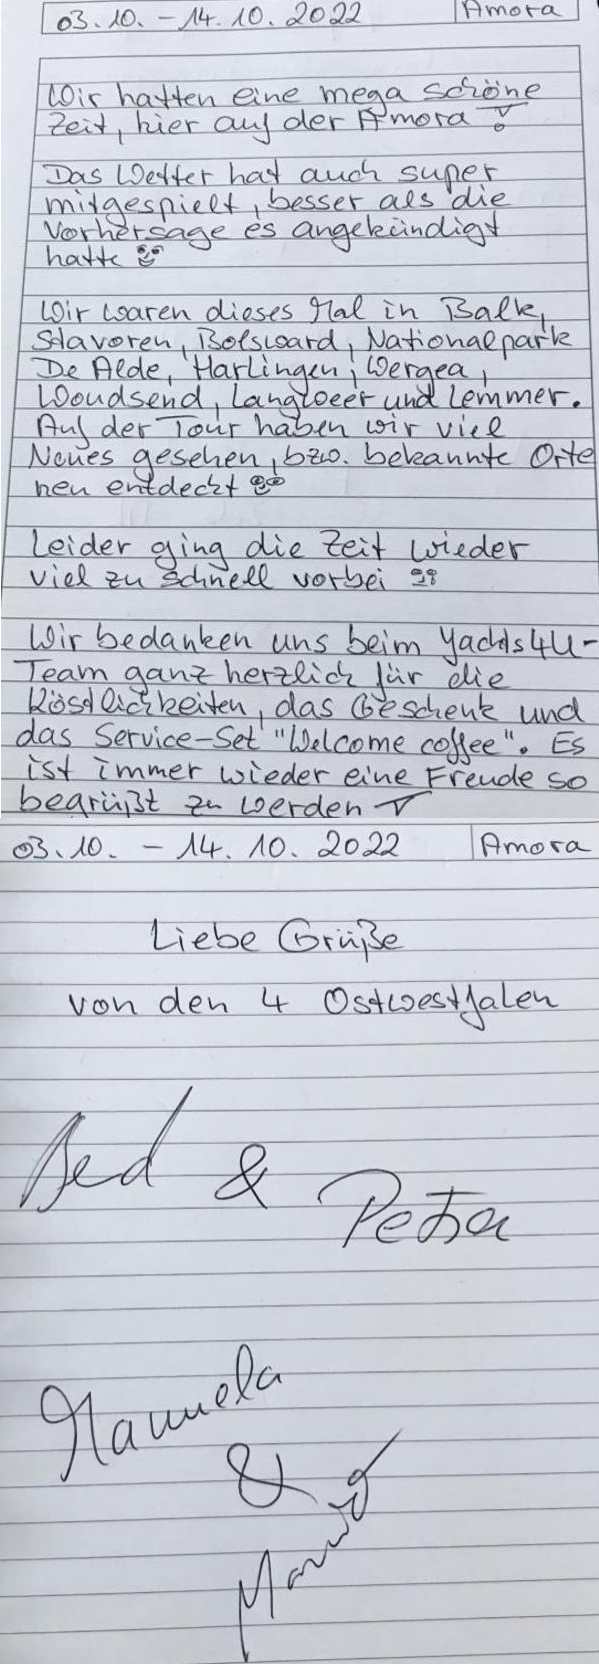 03.10. - 14.10. 2022 Amora
Wir hatten eine mega schöne
Zeit, hier auf der Amora !
Das Wetter hat auch super
mitgespielt, besser als die
Vorhersage es angekündigt
hatte
Wir waren dieses Mal in Balk,
Stavoren, Bolsward, Nationalpark
De Alde, Harlingen, Wergea,
Woudsend, Langweer und Lemmer.
Auf der Tour haben wir viel
Neues gesehen, bzw. bekannte Orte
neu entdeckt
Leider ging die Zeit wieder
viel zu schnell vorbei
Wir bedanken uns beim Yachts4U-
Team ganz herzlich für die
Köstlichkeiten, das Geschenk und
das Service-Set "Welcome coffee". Es
ist immer wieder eine Freude so
begrüßt zu werden
03.10. - 14.10. 2022 Amora
Liebe Grüße
von den 4 Ostwestfalen
& Petra
Manuela
&